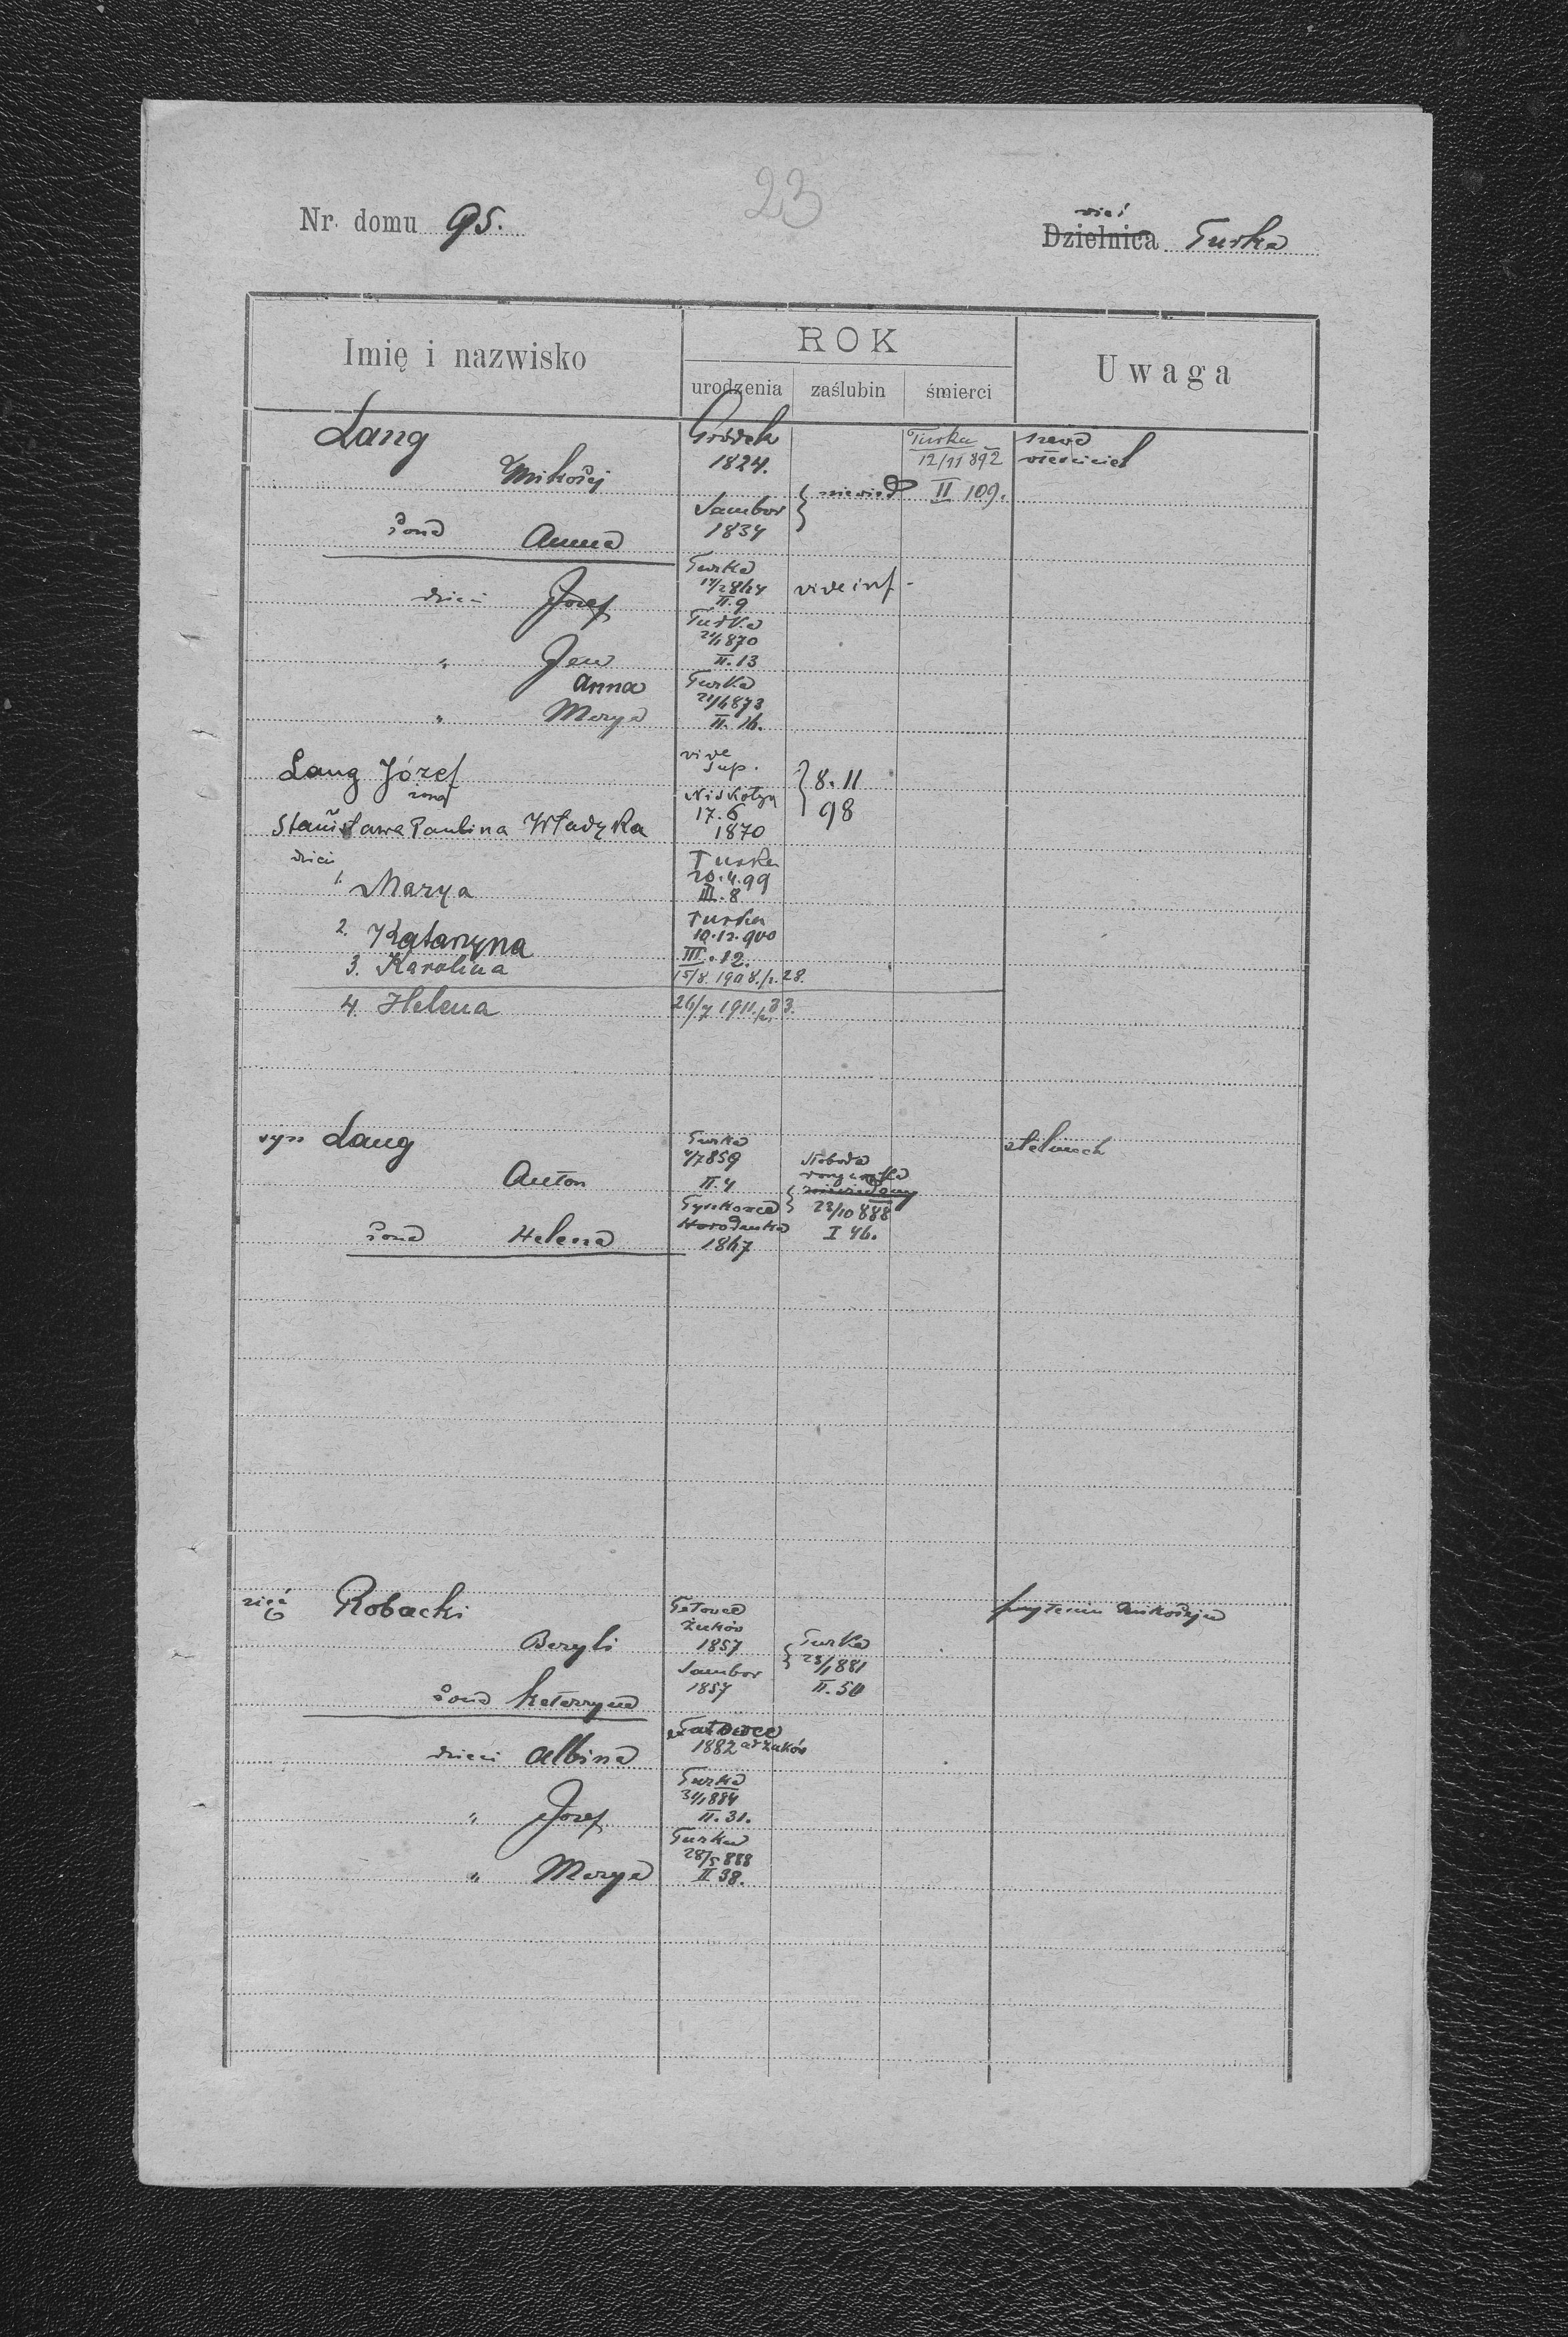 23
Nr. domu 95.
wieś
Dzielnica Turka
Imię i nazwisko
ROK
urodzenia zaślubin śmierci
Uwaga
Lang Gródek Turka szewc
Mikołaj 1824. 12/11 892 właściciel
II 109.
Sambor niewiad
żona Anna 1834
Turka
dzieci Józef vide inf.
II.9
Turka
" Jan 870
II.13
Anna Turka
" Marya 873
II. 16.
Lang Józef vide sup. 8.11
żona
Stanisława Paulina Władyka 17.6 98
1870
dzieci Turka
1. Marya 20.4.99
III.8
Turka
2. Katarzyna 10.12.900
III.12.
3. Karolina 15/8. 1908. p. 28.
4. Helena 26/7 1911. p. 33.
syn Lang Turka stelmach
Anton 4/7859 Słoboda
II.4
23/10 888
żona Helena Horodenka I 46.
1867
zięć Robacki przy teściu Mikołaju
Żuków
Bazyli 1857 Turka
Sambor 881
żona Katarzyna 1857 II.50
Tatowce
dzieci Albina 1882 ad Żuków
Turka
" Józef 884
II.31.
Turka
" Marya 28/5 888
II 38.